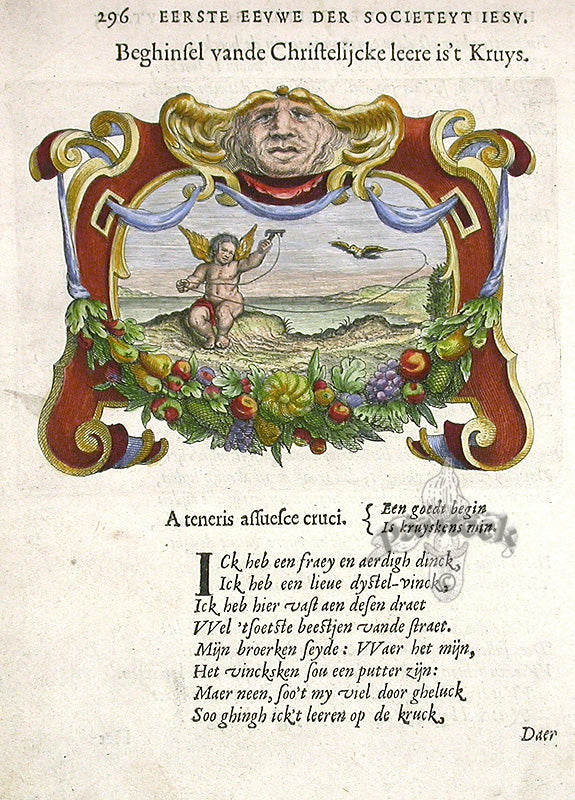 296 EERSTE EEVWE DER SOCIETEYT IESV.
Beghinſel vande Chriſtelijcke leere is't Kruys.
A teneris aſſueſce cruci. { Een goedt begin
Is kruyskens min.
ICk heb een fraey en aerdigh dinck,
Ick heb een lieue dyſtel-vinck,
Ick heb hier vaſt aen deſen draet
VVel 'tſoetſte beeſtjen vande ſtraet.
Mijn broerken ſeyde: VVaer het mijn,
Het vincksken ſou een putter zijn:
Maer neen, ſoo't my viel door gheluck,
Soo ghingh ick't leeren op de kruck,
Daer